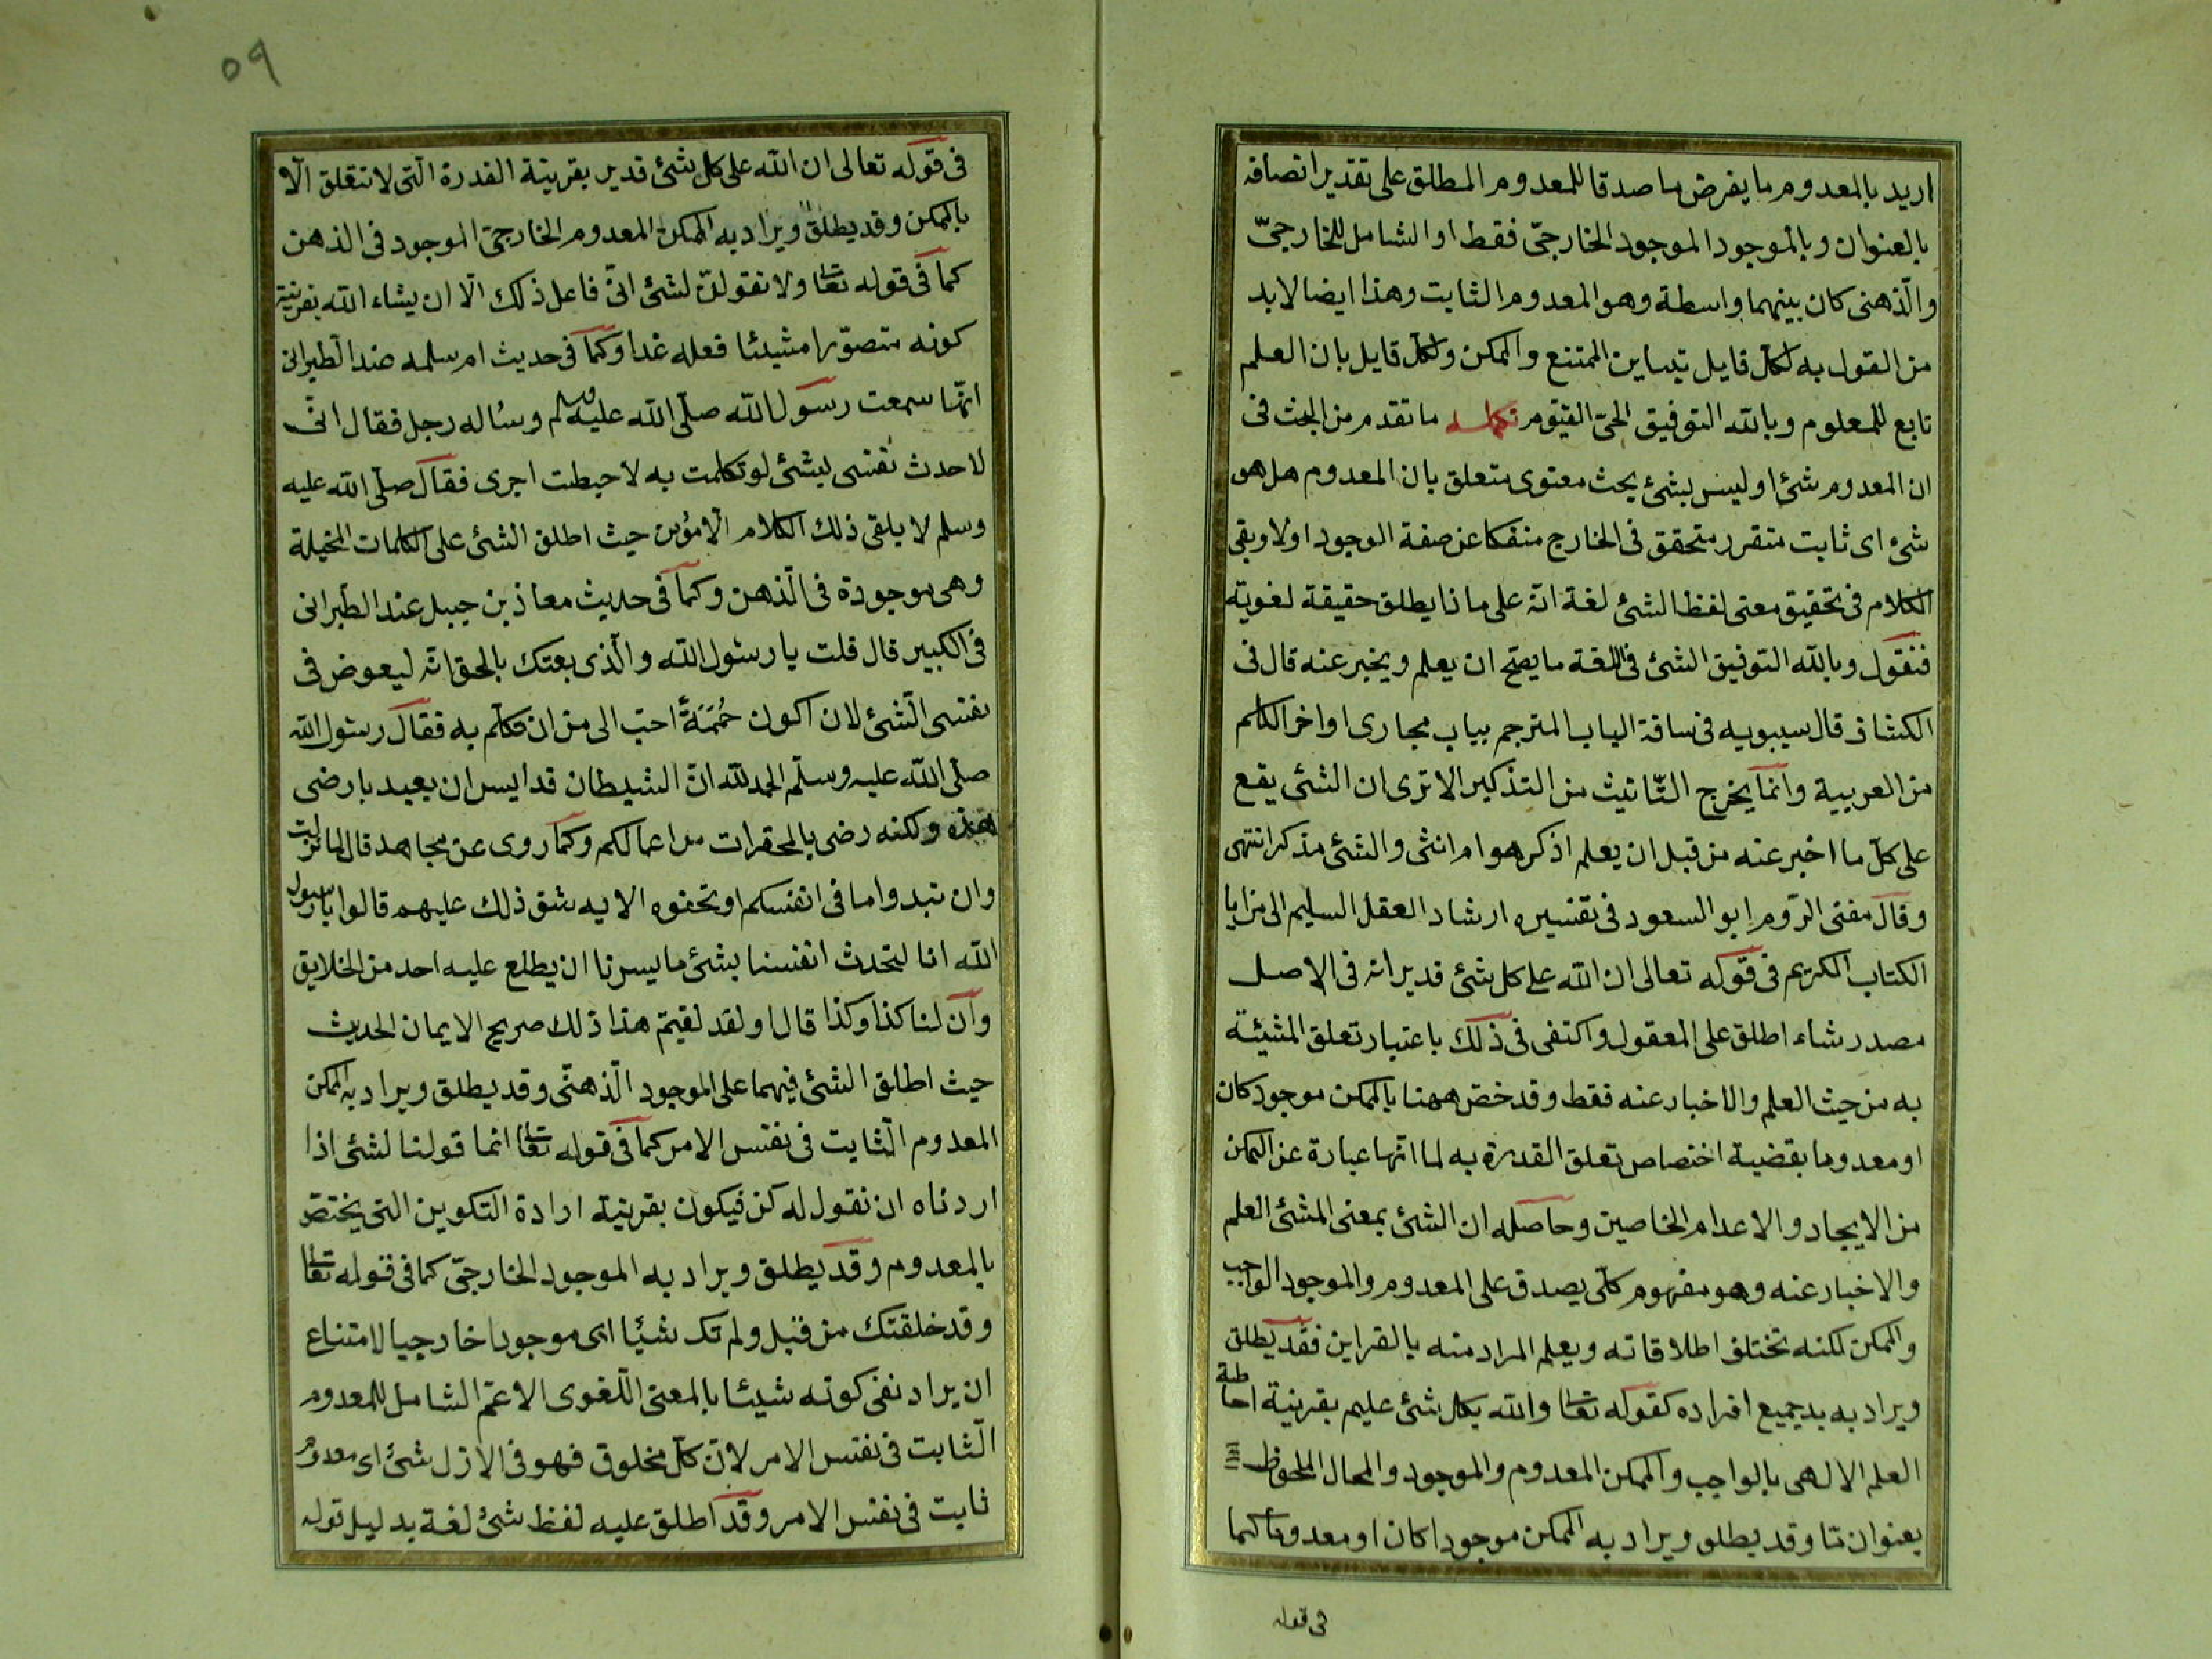 اريد بالمعدوم ما يفرض ما صدقا للمعدوم المطلق على تقدير اتصافه
بالعنوان وبالموجود الموجود الخارجىّ فقط او الشامل للخارجىّ
والّذهنى كان بينهما واسطة وهو المعدوم الثابت وهذا ايضا لابد
من القول به لكلّ قايل بتباين الممتنع والممكن ولكلّ قايل بان العلم
تابع للمعلوم وبالله التوفيق الحىّ القيّوم تكملـه ما تقدم من البحث فى
ان المعدوم شئ او ليس بشئ بحث معنوى متعلق بان المعدوم هل هو
شئ اى ثابت متقرر متحقق فى الخارج منفكا عن صفة الوجود اولا وبقى
الكلام فى تحقيق معنى لفظ الشئ لغة انّه على ماذا يطلق حقيقة لغوية
فنقول وبالله التوفيق الشئ فى اللغة ما يصحّ ان يعلم ويخبر عنه قال فى
الكشاف قال سيبويه فى ساقة الباب المترجم بباب مجارى اواخر الكلم
من العربية وانّما يخرج التّانيث من التذكير الا ترى ان الشئ يقع
على كلّ ما اخبر عنه من قبل ان يعلم اذكر هو ام انثى والشئ مذكر انتهى
وقال مفتى الرّوم ابو السعود فى تفسيره ارشاد العقل السليم الى مزايا
الكتاب الكريم فى قوله تعالى ان الله على كل شئ قدير انه فى الاصل
مصدر شاء اطلق على المعقول واكتفى فى ذلك باعتبار تعلق المشيئة
به من حيث العلم والاخبار عنه فقط وقد خصّ ههنا بالممكن موجود كان
او معدوما بقضية اختصاص تعلق القدرة به لما انّها عبارة عن التمكن
من الايجاد والاعدام الخاصين وحاصله ان الشئ بمعنى المشئ العلم
والاخبار عنه وهو مفهوم كلّى يصدق على المعدوم والموجود الواجب
والممكن لكنه تختلف اطلاقاته ويعلم المراد منه بالقراين فقد يطلق
ويراد به جميع افراده كقوله تعا والله بكل شئ عليم بقرينة احاطة
العلم الالهى بالواجب والممكن المعدوم والموجود والمحال الملحوظ
بعنوان مّا وقد يطلق ويراد به الممكن موجودا كان او معدوما كما
فى قوله
٥٩
فى قوله تعالى ان الله على كل شئ قدير بقرينة القدرة الّتى لا تتعلق الّا
بالممكن وقد يطلق ويراد به الممكن المعدوم الخارجىّ الموجود فى الذهن
كما فى قوله تعا ولا تقولنّ لشئ انىّ فاعل ذلك الّا ان يشاء الله بقرينة
كونه متصوّرا مشيئا فعله غدا وكما فى حديث ام سلمه عند الطبرانى
انّها سمعت رسول الله صلّى الله عليه وسلم وساله رجل فقال انّى
لاحدث نفسى بشئ لو تكلمت به لاحبطت اجرى فقال صلّى الله عليه
وسلم لا يلقى ذلك الكلام الّا مؤمن حيث اطلق الشئ على الكلمات المخيلة
وهى موجودة فى الّذهن وكما فى حديث معاذ بن جبل عند الطبرانى
فى الكبير قال قلت يا رسول الله والّذى بعثك بالحق انّه ليعرض فى
نفسى الّشئ لان اكون حُمَمَةً احبّ الى من ان اتكلم به فقال رسول الله
صلّى الله عليه وسلّم الحمد لله انّ الشيطان قد ايس ان يعبد بارضى
هذه ولكنه رضى بالمحقرات من اعمالكم وكما روى عن مجاهد قال لما نزلت
وان تبدوا ما فى انفسكم او تخفوه الايه شق ذلك عليهم قالوا يا رسول
الله انا لنحدث انفسنا بشئ ما يسرنا ان يطلع عليه احد من الخلايق
وان لنا كذا وكذا قال او لقد لقيتم هذا ذلك صريح الايمان الحديث
حيث اطلق الشئ فيهما على الموجود الّذهنّى وقد يطلق ويراد به الممكن
المعدوم الّثابت فى نفس الامر كما فى قوله تعا انما قولنا لشئ اذا
اردناه ان نقول له كن فيكون بقرينة ارادة التكوين التى يختصّ
بالمعدوم وقد يطلق ويراد به الموجود الخارجىّ كما فى قوله تعا
وقد خلقتك من قبل ولم تك شيئا اى موجودا خارجيا لامتناع
ان يراد نفى كونه شيئا بالمعنى اللّغوى الاعمّ الشامل للمعدوم
الّثابت فى نفس الامر لانّ كلّ مخلوق فهو فى الازل شئ اى معدوم
ثابت فى نفس الامر وقد اطلق عليه لفظ شئ لغة بدليل قوله